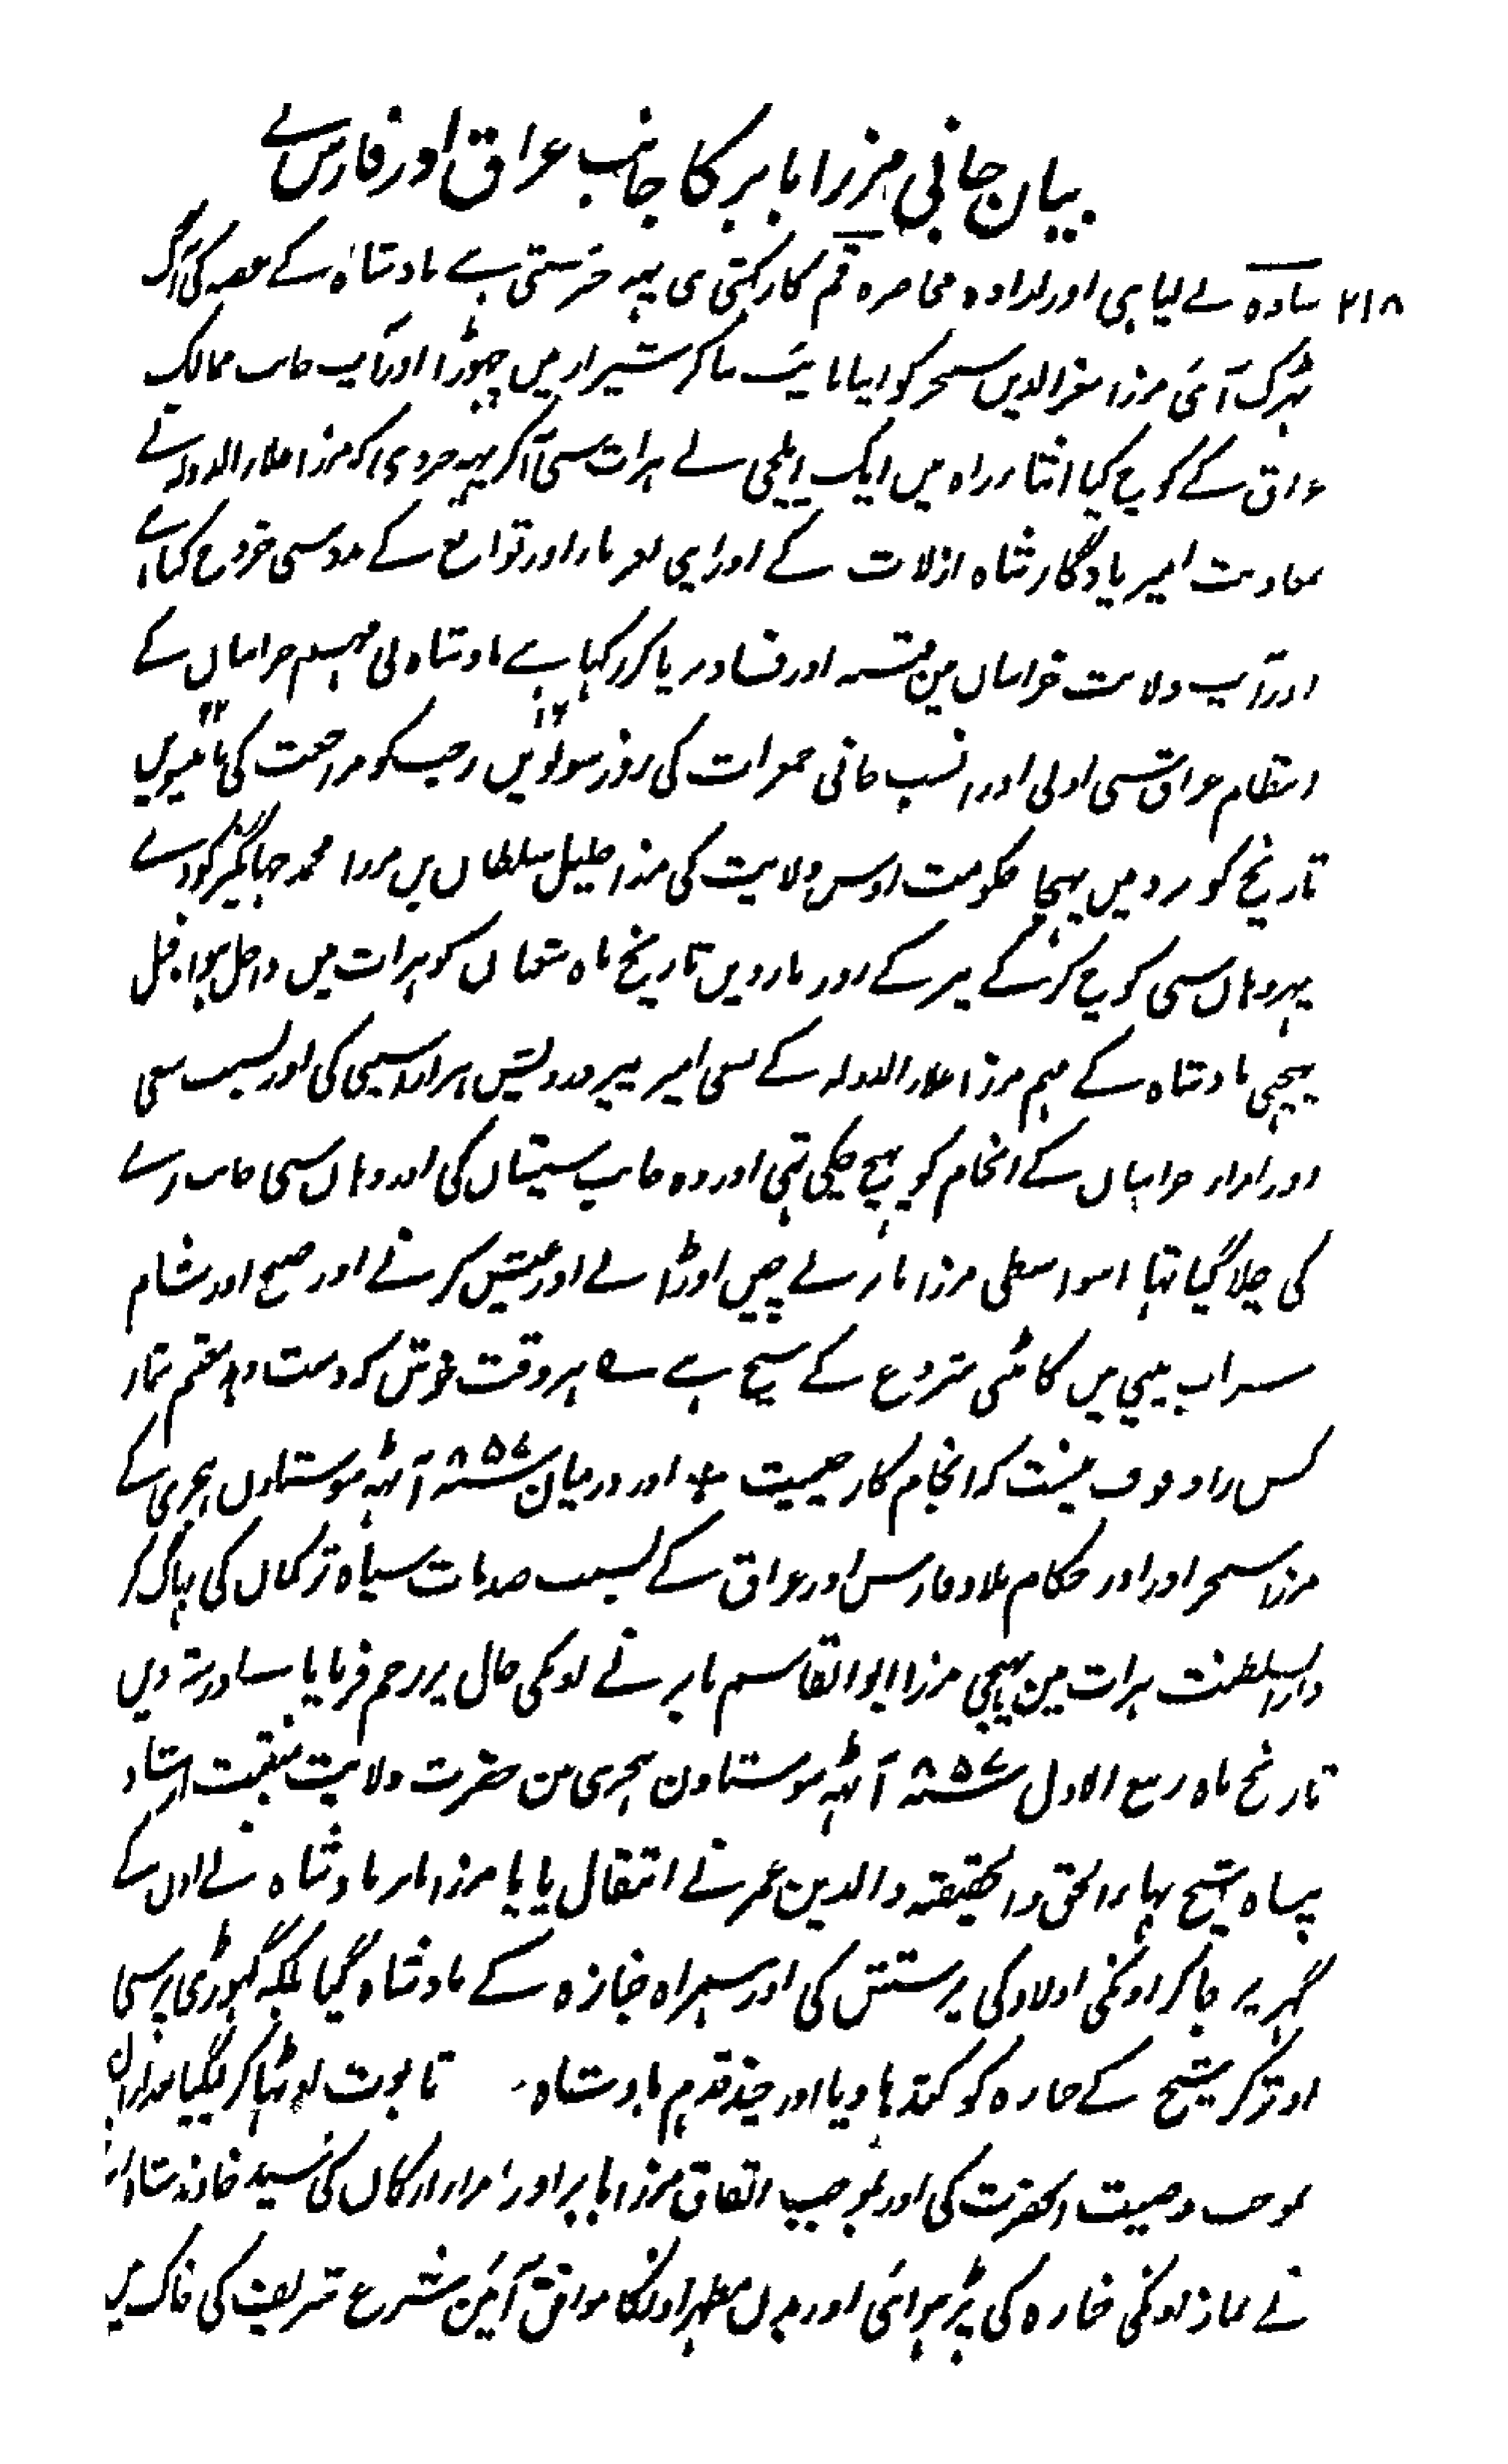 بیان جانی مرزا بابر کا جانب عراق اور فارس کے
۲۱۸ سادہ نے لیا ہی اور ارادہ محاصرہ قم کا رکہتی ہی یہہ خبر سنتی ہے بادشاہ کے غصہ کی آگ
بہڑک آئی مرزا معزالدین سنجر کو اپنا نایب بنا کر شیراز میں چہوڑا اور آپ جانب ممالک
عراق کے کوچ کیا اثناء راہ میں ایک ایلچی نے ہرات سی آکر یہہ خبر دی کہ مرزا علاءالدولہ نے
معاونت امیر یادگار شاہ ارلات کے اور اپنی اور توابع کے مدد سی خروج کیا ہے
اور آپ ولایت خراسان مین فتنہ اور فساد برپا کر رکہا ہے بادشاہ نی مہم خراسان کے
انتظام عراق سی اولی اور انسب جانی جمعرات کی روز سولہویں ۱۶ رجب کو مراجعت کی بائیسویں ۲۲
تاریخ کو یزد میں پہنچا حکومت اوس ولایت کی مرزا خلیل سلطان بن مرزا محمد جہانگیر کو دے
پہر وہاں سی کوچ کر کے پیر کے روز بارہویں تاریخ ماہ شعبان کو ہرات میں داخل ہوا قبل
پہنچی بادشاہ کے مہم مرزا علاءالدولہ کے سعی امیر پیر درویش ہزار اسپی کی اور بسبب سعی
اور امراء خراسان کے انجام کو پہنچ چکی تہی اور وہ جانب سیستان کی اور وہاں سی جانب رے
کی چلا گیا تہا اسواسطی مرزا بابر نے چین اوڑانے اور عیش کرنے اور صبح اور شام
شراب پینی میں کاٹنی شروع کے سچ ہے ؎ ہر وقت خوش کہ دست دہد مغتنم شمار
کس را وقوف نیست کہ انجام کار چیست ÷ اور درمیان ۸۵۷ سنہ آٹہہ سو ستاون ہجری کے
مرزا سنجر اور اور حکام بلاد فارس اور عراق کے بسبب صدمات سپاہ ترکمان کی بہاگ کر
دارالسلطنت ہرات مین پہنچی مرزا ابوالقاسم بابر نے اونکی حال پر رحم فرمایا
تاریخ ماہ ربیع الاول ۸۵۷ سنہ آٹہہ سو ستاون ہجری من حضرت ولایت منقبت ارشاد
پناہ شیخ بہاء الحق والحقیقتہ والدین عمر نے انتقال پایا مرزا بابر بادشاہ نے اون کے
گہر پر جا کر اونکی اولاد کی پرسش کی اور ہمراہ جنازہ کے بادشاہ گیا بلکہ گہوڑی پر سی
اوتر کر شیخ کے جنازہ کو کندہا دیا اور چند قدم بادشاہ تابوت اوٹہا کر لیگیا بعد ازان
بموجب وصیت آنحضرت کی اور بموجب اتفاق مرزا بابر اور امرا ارکان کی سید خاوند شاہ
نے نماز اونکی جنازہ کی پڑہوائی اور بدن مطہر اونکا موافق آئین شرع شریف کی خاک میں